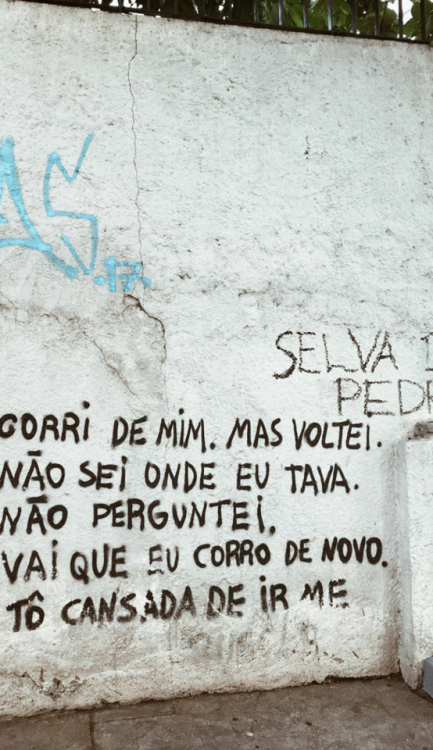 .17.
SELVA
PEDR
CORRi DE MiM. MAS VOLTEi.
NÃO SEi ONDE EU TAVA.
NÃO PERGUNTEi.
VAi QUE EU CORRO DE NOVO.
TÔ CANSADA DE iR ME